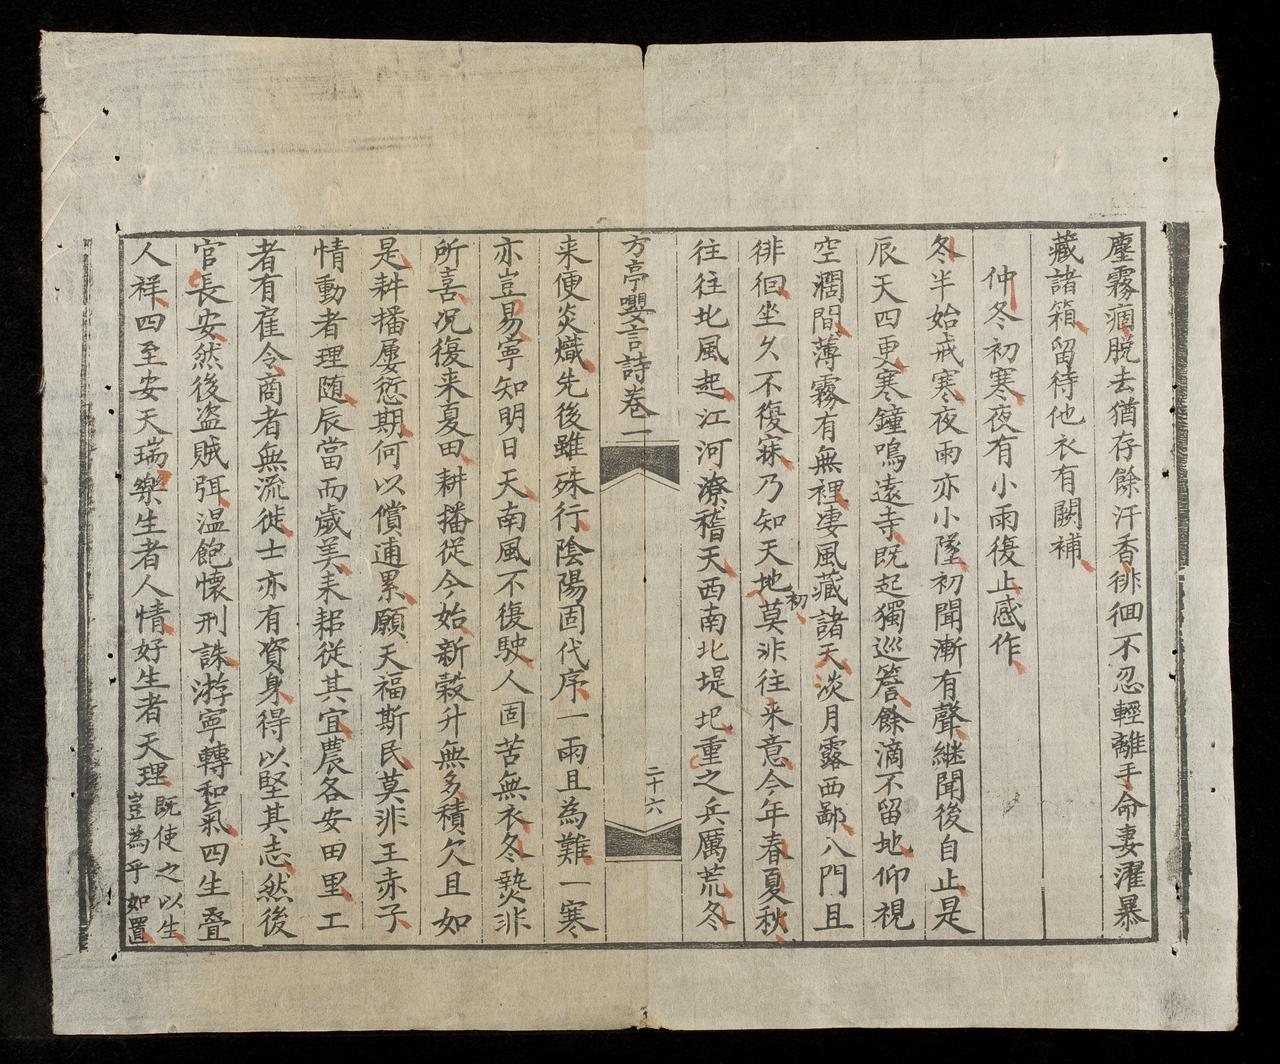 塵霧痼脫去猶存餘汗香徘徊不忍輕離手命妻濯暴
藏諸箱留待他衣有闕補
仲冬初寒夜有小雨復止感作
冬半始戒寒夜雨亦小墜初聞漸有聲継聞後自止是
辰天四更寒鐘鳴遠寺既起獨巡簷餘滴不留地仰視
空濶間薄霧有無裡凄風藏諸天淡月露西鄙八門且
徘徊坐久不復寐乃知天地初莫非往来意今年春夏秋
往往北風起江河潦稽天西南北堤圯重之兵厲荒冬
方亭嚶言詩卷一
二十六
来便炎熾先後雖殊行陰陽固代序一雨且為難一寒
亦豈易寧知明日天南風不復駛人固苦無衣冬煗非
所喜況復来夏田耕播從今始新穀升無多積欠且如
是耕播屢愆期何以償逋累願天福斯民莫非王赤子
情動者理随辰當而歲美耒耜從其宜農各安田里工
者有雇令商者無流徙士亦有資身得以堅其志然後
官長安然後盗賊弭温飽懷刑誅游寧轉和氣四生疊
人祥四至安天瑞樂生者人情好生者天理既使之以生
豈為乎如置